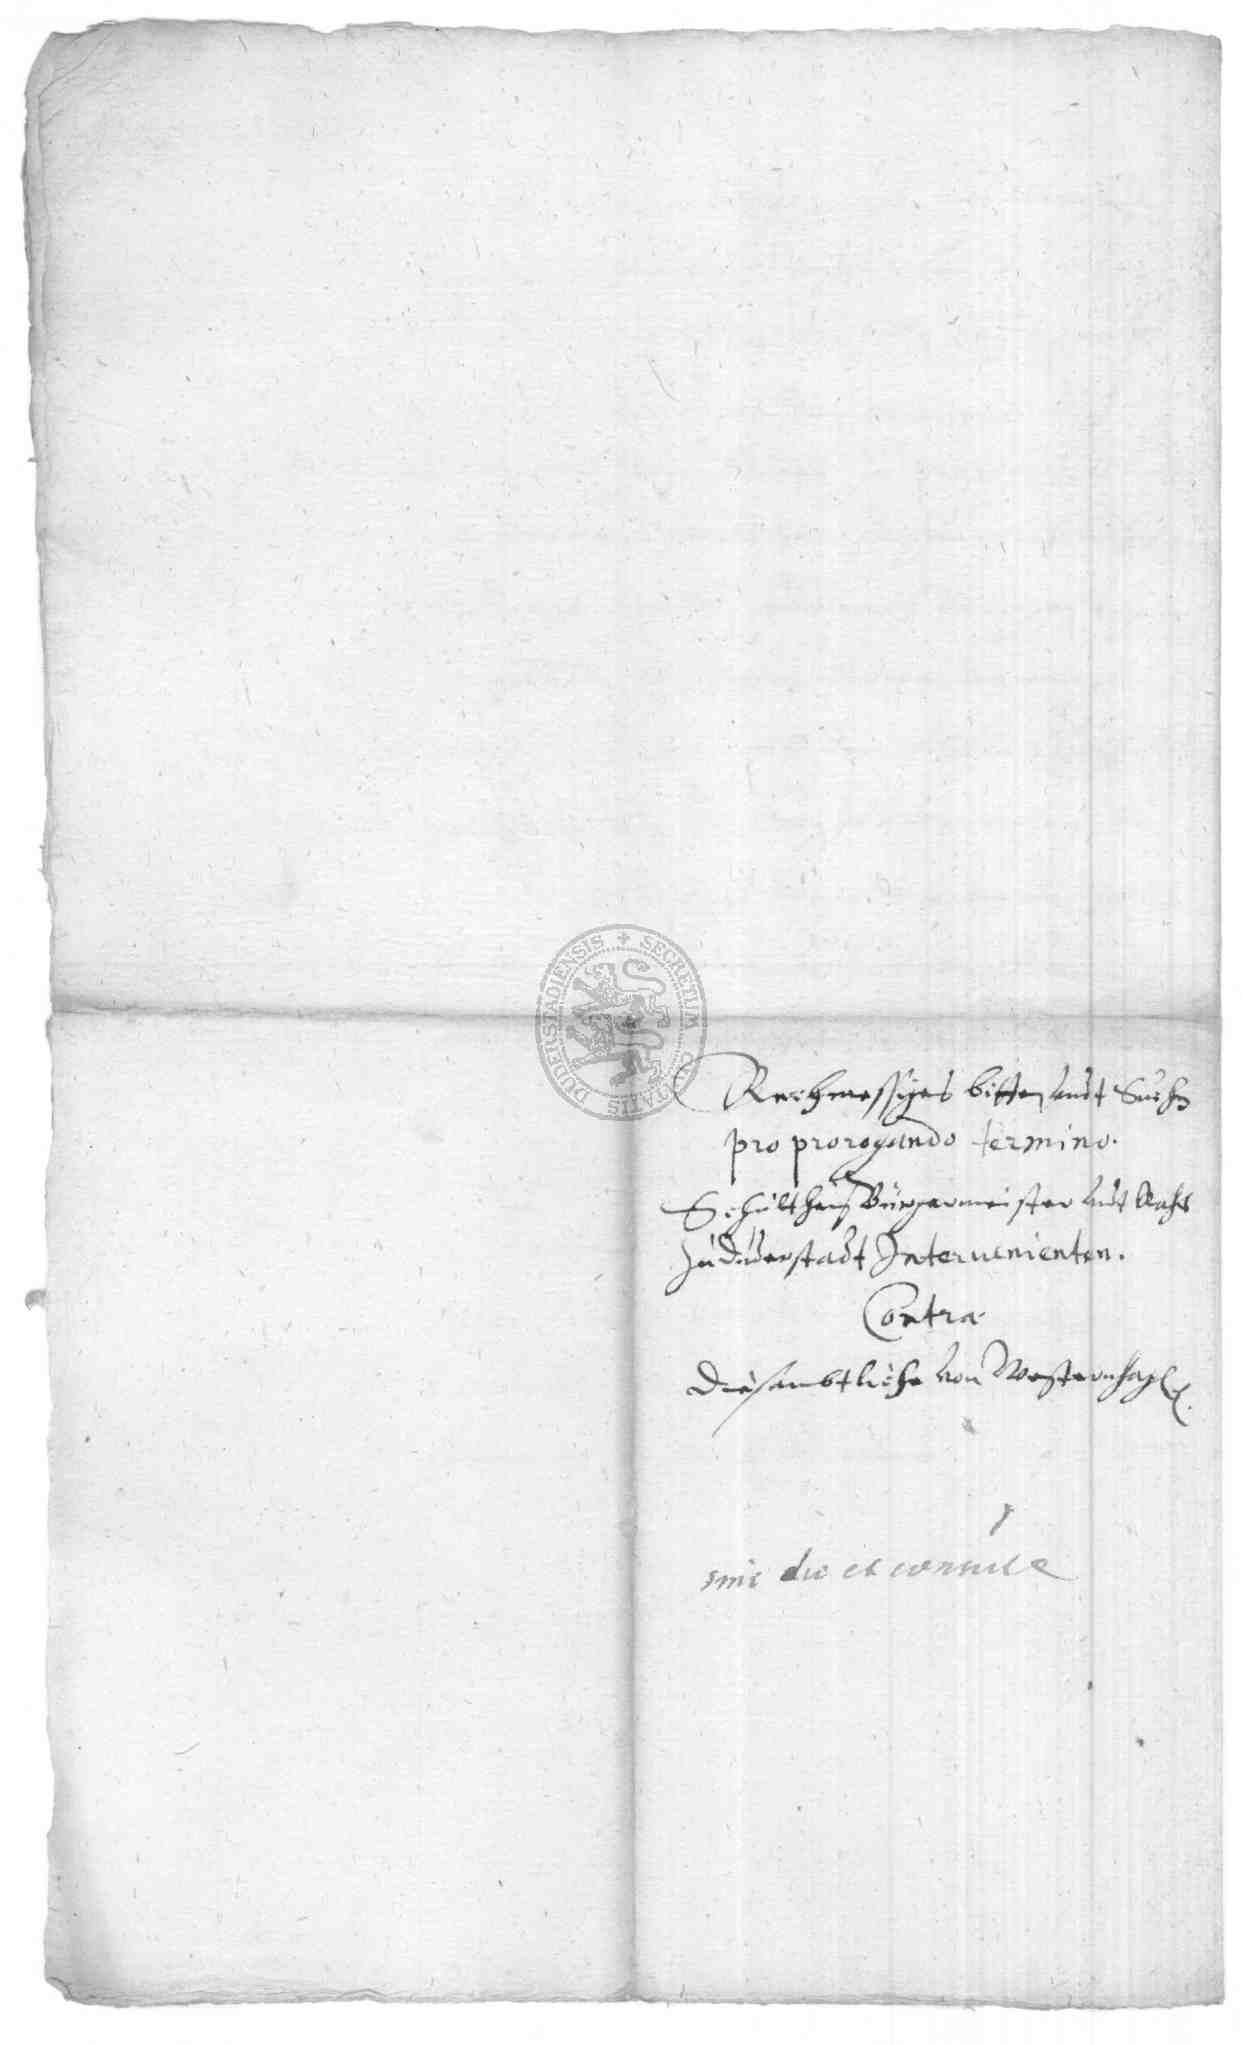 SECRETUM CIVITATIS DUDERSTADIENSIS
Rechmessiges bitten undt Suchen
pro prorogando termino.
Schultheiß Bürgermeister undt Raht
zu Duderstadt Interuenienten.
Contra
Die sambtliche von Westernhagen.
die et